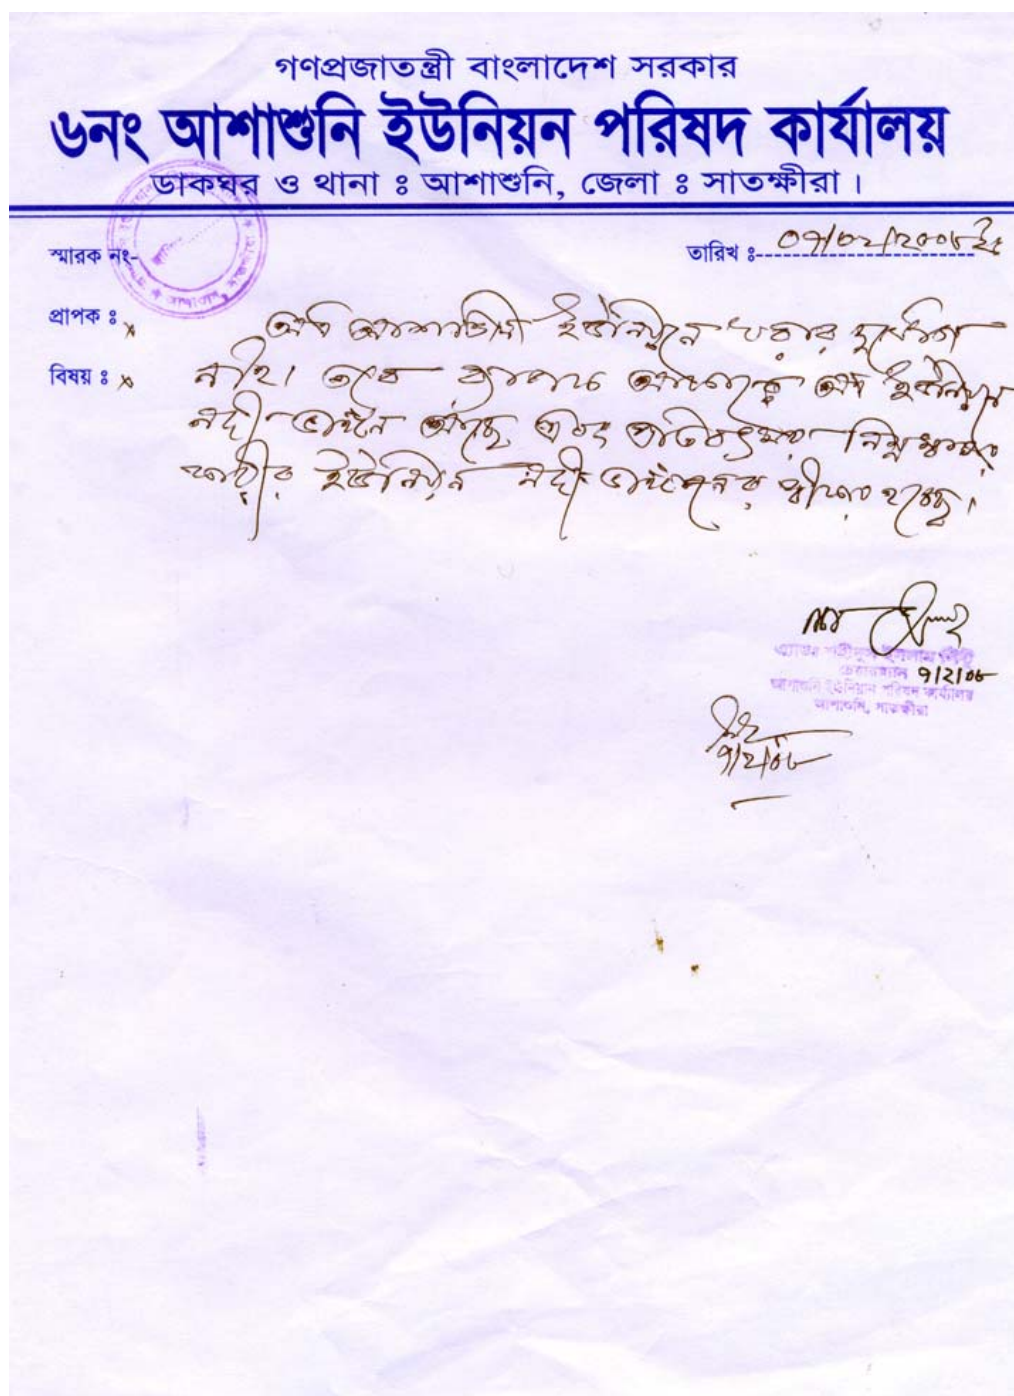 গণপ্রজাতন্ত্রী বাংলাদেশ সরকার
৬নং আশাশুনি ইউনিয়ন পরিষদ কার্যালয়
ডাকঘর ও থানা ঃ আশাশুনি, জেলা ঃ সাতক্ষীরা।
স্মারক নং-
তারিখ ঃ ০৭/০২/২০০৮ইং
প্রাপক ঃ
বিষয় ঃ
অত্র আশাশুনি ইউনিয়নে খরার দুর্যোগ
নাই। তবে ব্যাপক আকারে অত্র ইউনিয়নে
নদী ভাঙ্গন আছে এবং প্রতিবৎসর নিম্ন
ইউনিয়ন নদী ভাঙ্গনের স্বীকার হচ্ছে।
চেয়ারম্যান ৭/২/০৮
আশাশুনি ইউনিয়ন পরিষদ কার্যালয়
আশাশুনি, সাতক্ষীরা
৭/২/০৮